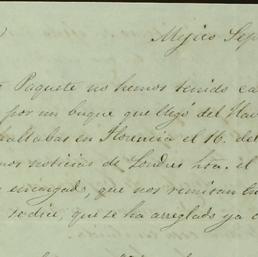 Mejico Sep
Paquete no hemos tenido ca
por un buque que llegó del Hav
hallabas en Florencia el 16. de
mos noticias de Londres hta. el
encargado, que nos remisan
se dice, que se ha arreglado ya